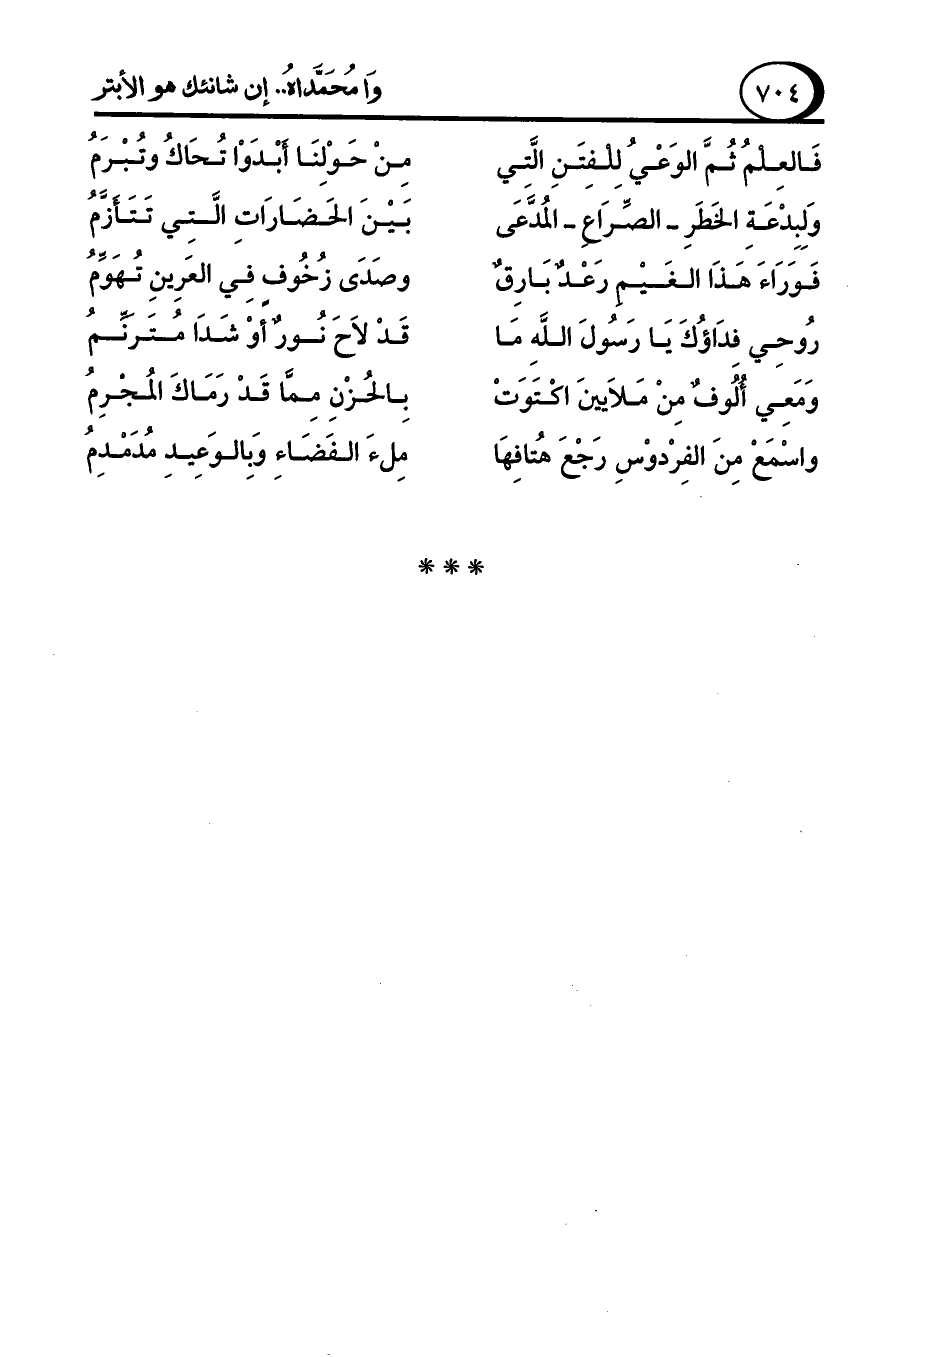 ٧٠٤ وَا مُحَمَّدَاهُ.. إن شانئك هو الأبتر
فَالعِلْمُ ثُمَّ الوَعْيُ لِلْفِتَنِ الَّتِي مِنْ حَوْلِنَا أَبْدَوْا تُحَاكُ وتُبْرَمُ
وَلِبِدْعَةِ الخَطَرِ - الصِّرَاعِ - المُدَّعَى بَيْنَ الحَضَارَاتِ الَّتِي تَتَأَزَّمُ
فَوَرَاءَ هَذَا الغَيْمِ رَعْدٌ بَارِقٌ وصَدَى زُخُوفٍ فِي العَرِينِ تُهَوِّمُ
رُوحِي فِدَاؤُكَ يَا رَسُولَ اللَّهِ مَا قَدْ لاَحَ نُورٌ أوْ شَدَا مُتَرَنِّمُ
وَمَعِي أُلُوفٌ مِنْ مَلاَيِينَ اكْتَوَتْ بِالحُزْنِ مِمَّا قَدْ رَمَاكَ المُجْرِمُ
واسْمَعْ مِنَ الفِرْدَوْسِ رَجْعَ هُتَافِهَا مِلءَ الفَضَاءِ وَبِالوَعِيدِ مُدَمْدِمُ
***